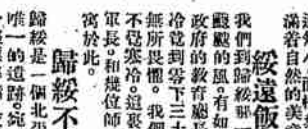 滿若自然的美
綏遠飯
我們到歸綏那一
颼颼的風。有如
政府的教育廳長
冷竟到零下三十
無所畏懼。我們
不覺寒冷。這聚
軍長。和幾位師
寓於此。
歸綏不
歸綏是一個北
唯一的遺跡。宛